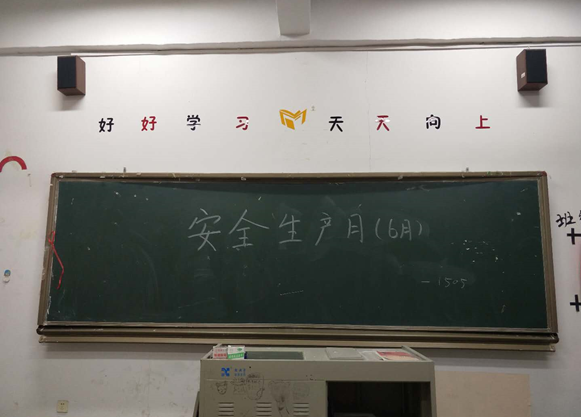 好好学习 天天向上
安全生产月(6月)
-1505
班